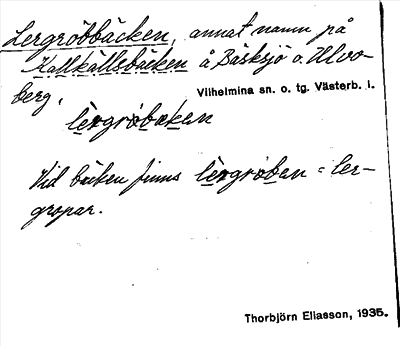 Lergröbbäcken, annat namn på
Kallkällsbäcken å Bäsksjö o. Ulvo-
berg.
Vilhelmina sn. o. tg. Västerb. l.
lèrgröbækεn
Vid bäcken finns lèrgröben = ler-
gropar.
Thorbjörn Eliasson, 1935.